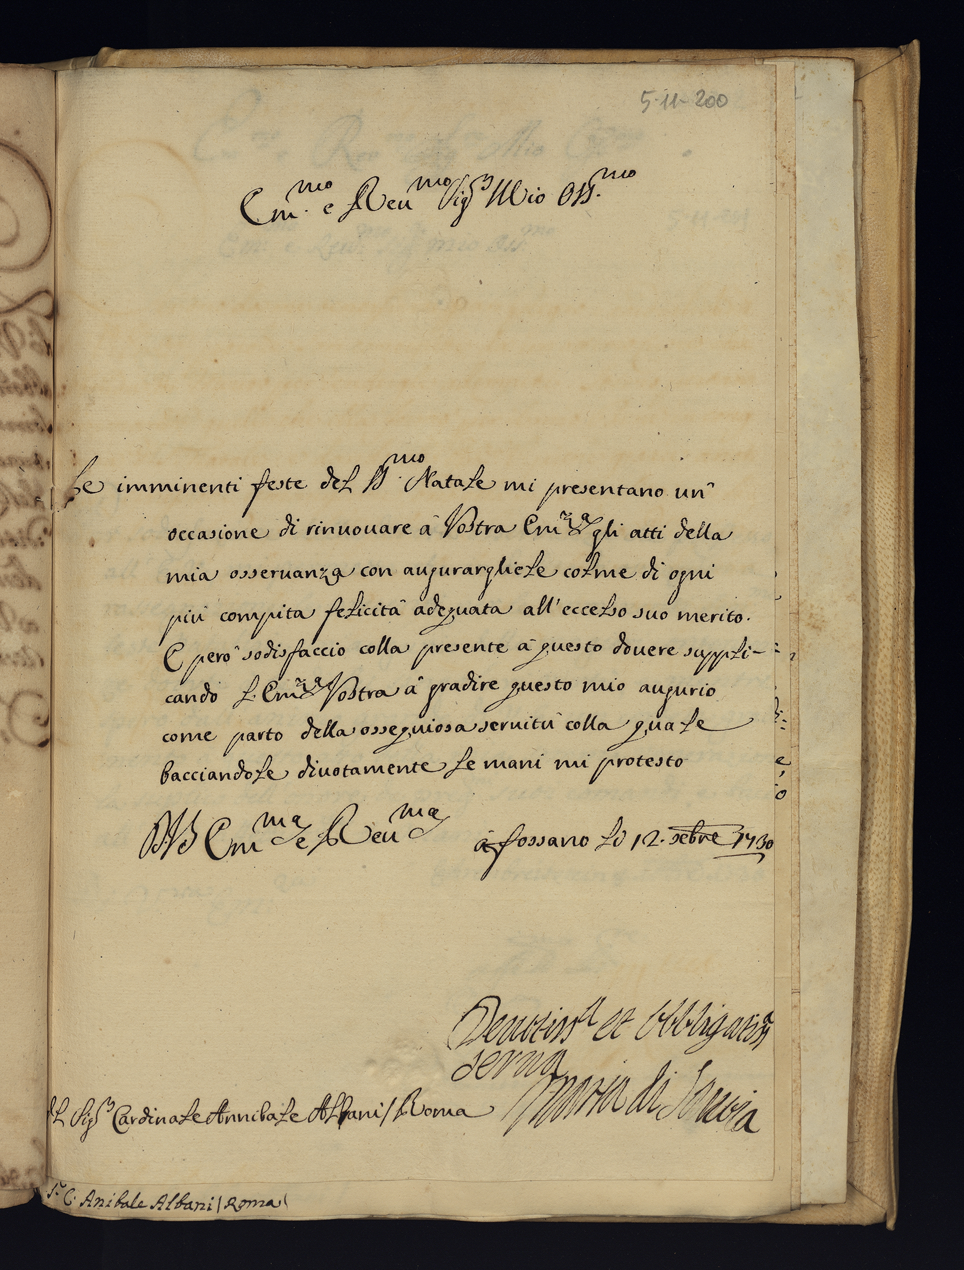 5-11-200
Em.mo e Reu.mo Sig.r Mio Oss.mo
Le imminenti feste del SS.mo Natale mi presentano un'
occasione di rinuouare à Vostra Em.za gli atti della
mia osseruanza con augurargliele colme di ogni
più compita felicità adequata all'eccelso suo merito.
E però sodisfaccio colla presente à questo douere suppli-
cando l'Em.za Vostra à gradire questo mio augurio
come parto della ossequiosa seruitù colla quale
bacciandole diuotamente le mani mi protesto
D V Em.ma e Reu.ma
à fossano li 12. xebre 1730
Deuotiss.a et Obbligatis.a
serua
Maria di Sauoia
Sig.r Cardinale Annibale Albani / Roma
S.r C. Anibale Albani / Roma /